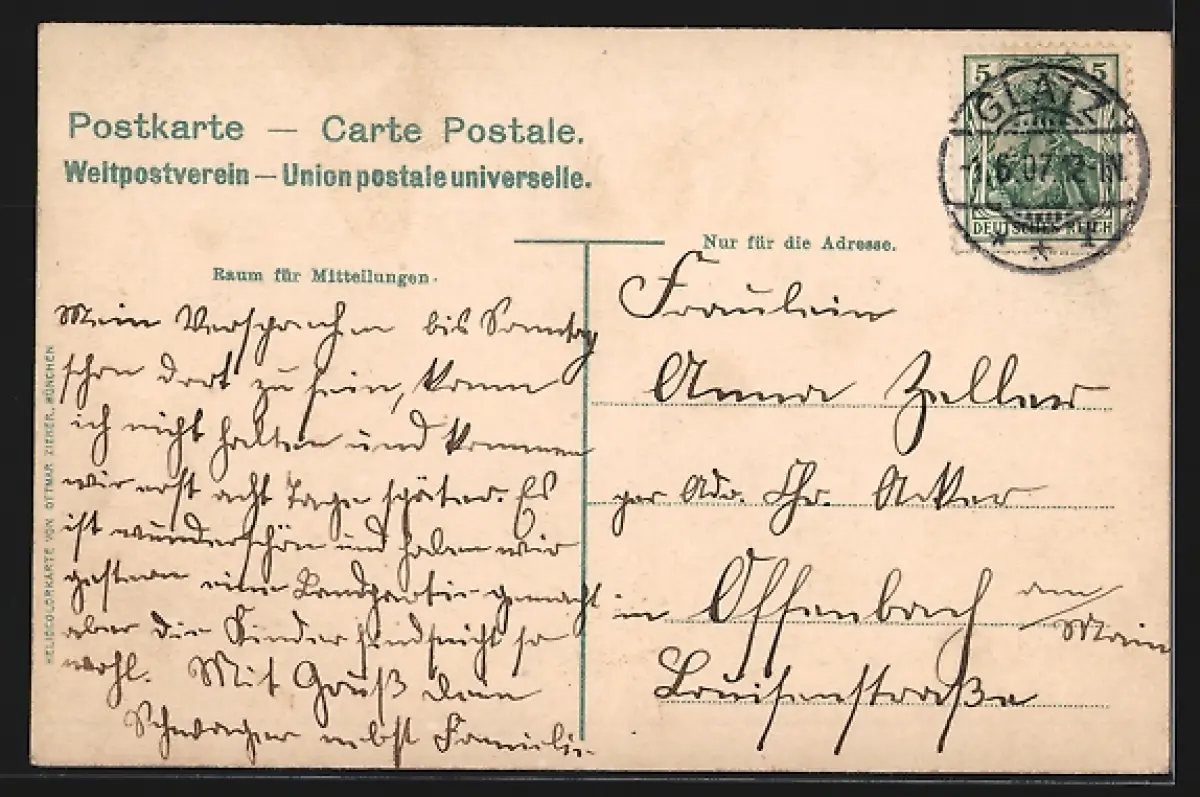 Postkarte — Carte Postale.
Weltpostverein — Union postale universelle.
5 5
GLATZ
-1.6.07.12-1N.
DEUTSCHES REICH
Nur für die Adresse.
Raum für Mitteilungen.
Mein Versprechen bis Sonntag
schon dort zu sein, kann
ich nicht halten und kommen
wir erst acht Tage später. Es
ist wunderschön und haben wir
gestern eine Landpartie gemacht
aber die Kinder sind nicht so
wohl. Mit Gruß Dein
Schwager nebst Familie.
Fräulein
Anna Zeller
per Adr. Chr. Acker
in Offenbach am/Main
Louisenstraße
HELIOCOLORKARTE VON OTTMAR ZIEHER, MÜNCHEN